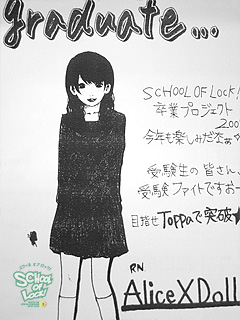 graduate...
SCHOOL OF LOCK!
卒業プロジェクト
200
今年も楽しみだなぁ
受験生の皆さん、
受験ファイトですおー
目指せToppaで突破★
RN
AliceXDoll
SCHOOL
OF
LOCK!